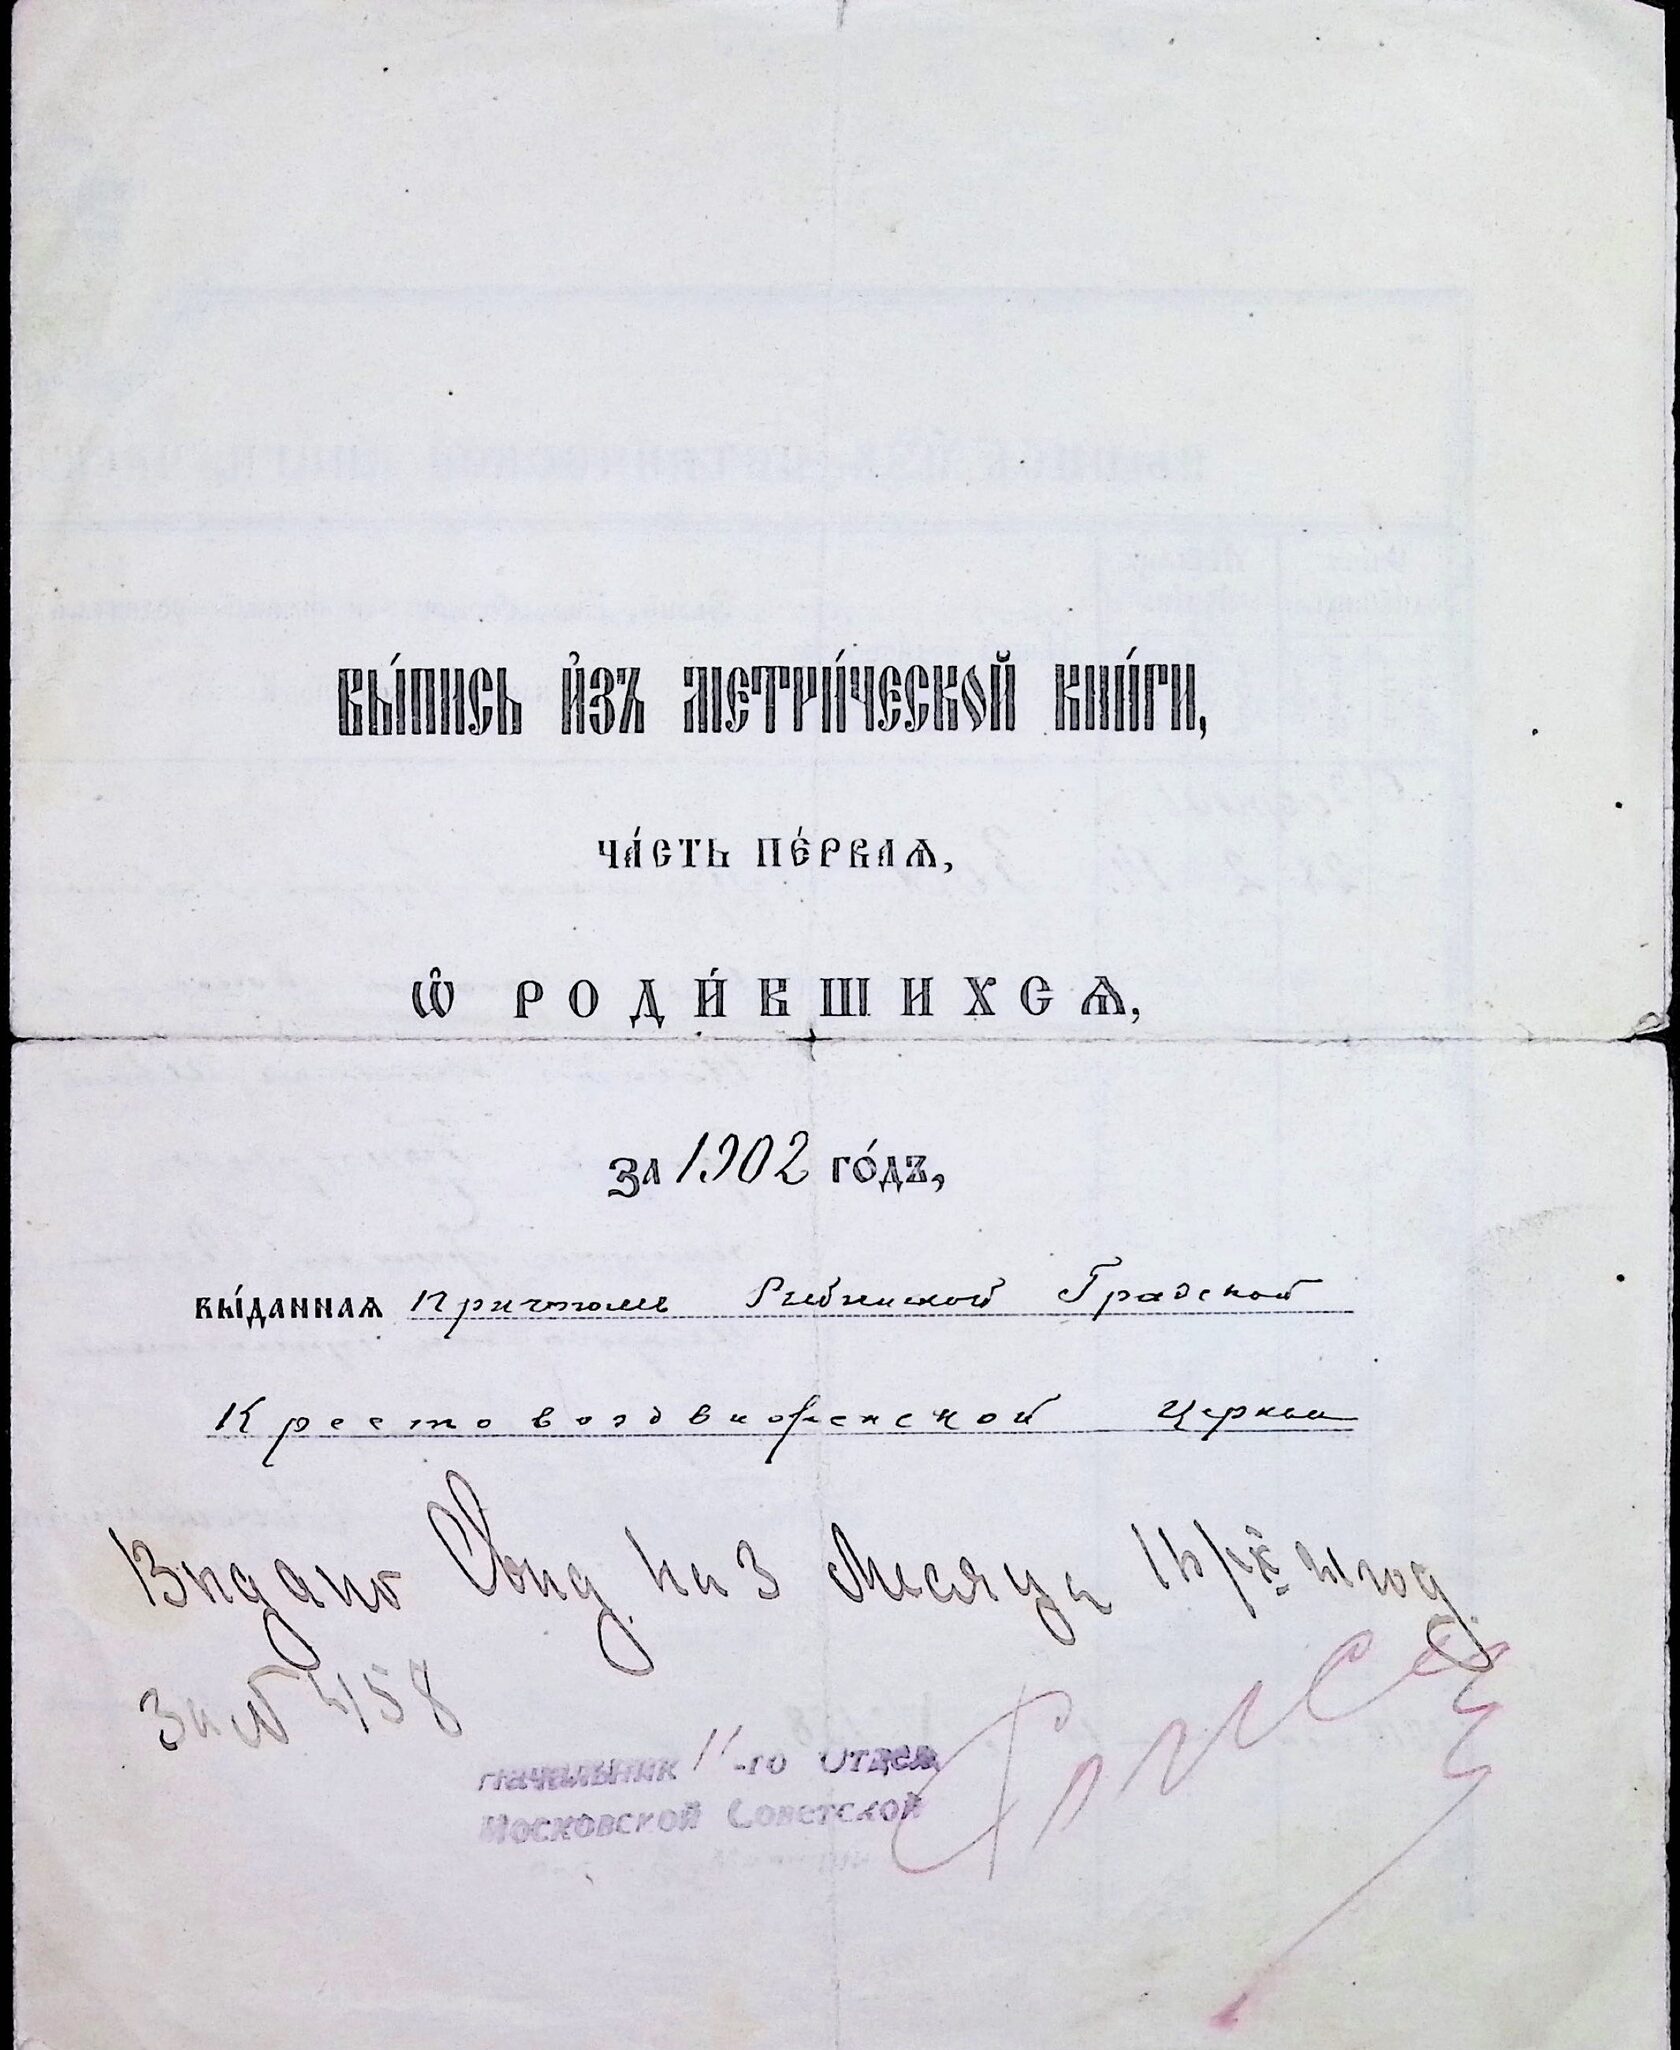 Вы́пись и҆зъ метри́ческой кни́ги,
ча́сть пе́рваѧ,
ѡ҆ роди́вшихсѧ,
за 1902 го́дъ,
вы́даннаѧ Причтомъ Рыбинской Градской
Крестовоздвиженской церкви
Выдано Свид. на 3 Месяца
За № 458
Начальник 11-го Отдел
Московской Советской